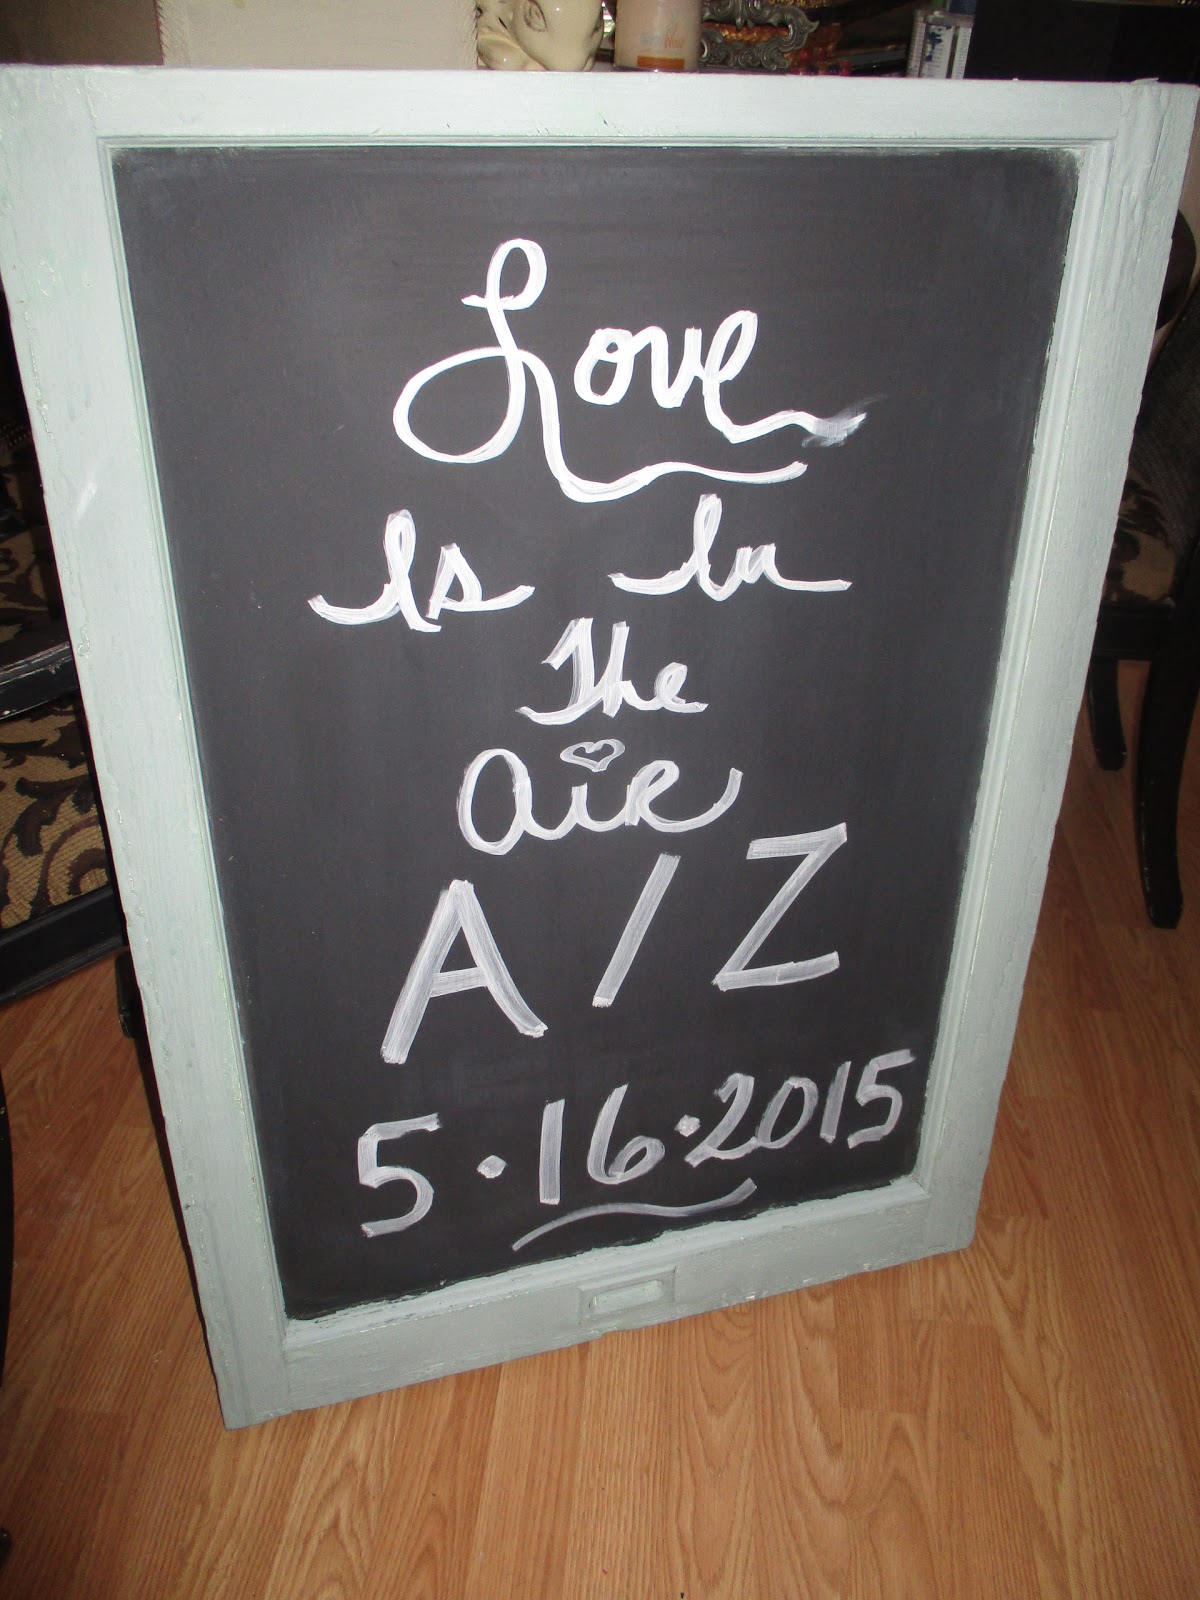 Love
Is In
The
air
A/Z
5.16.2015